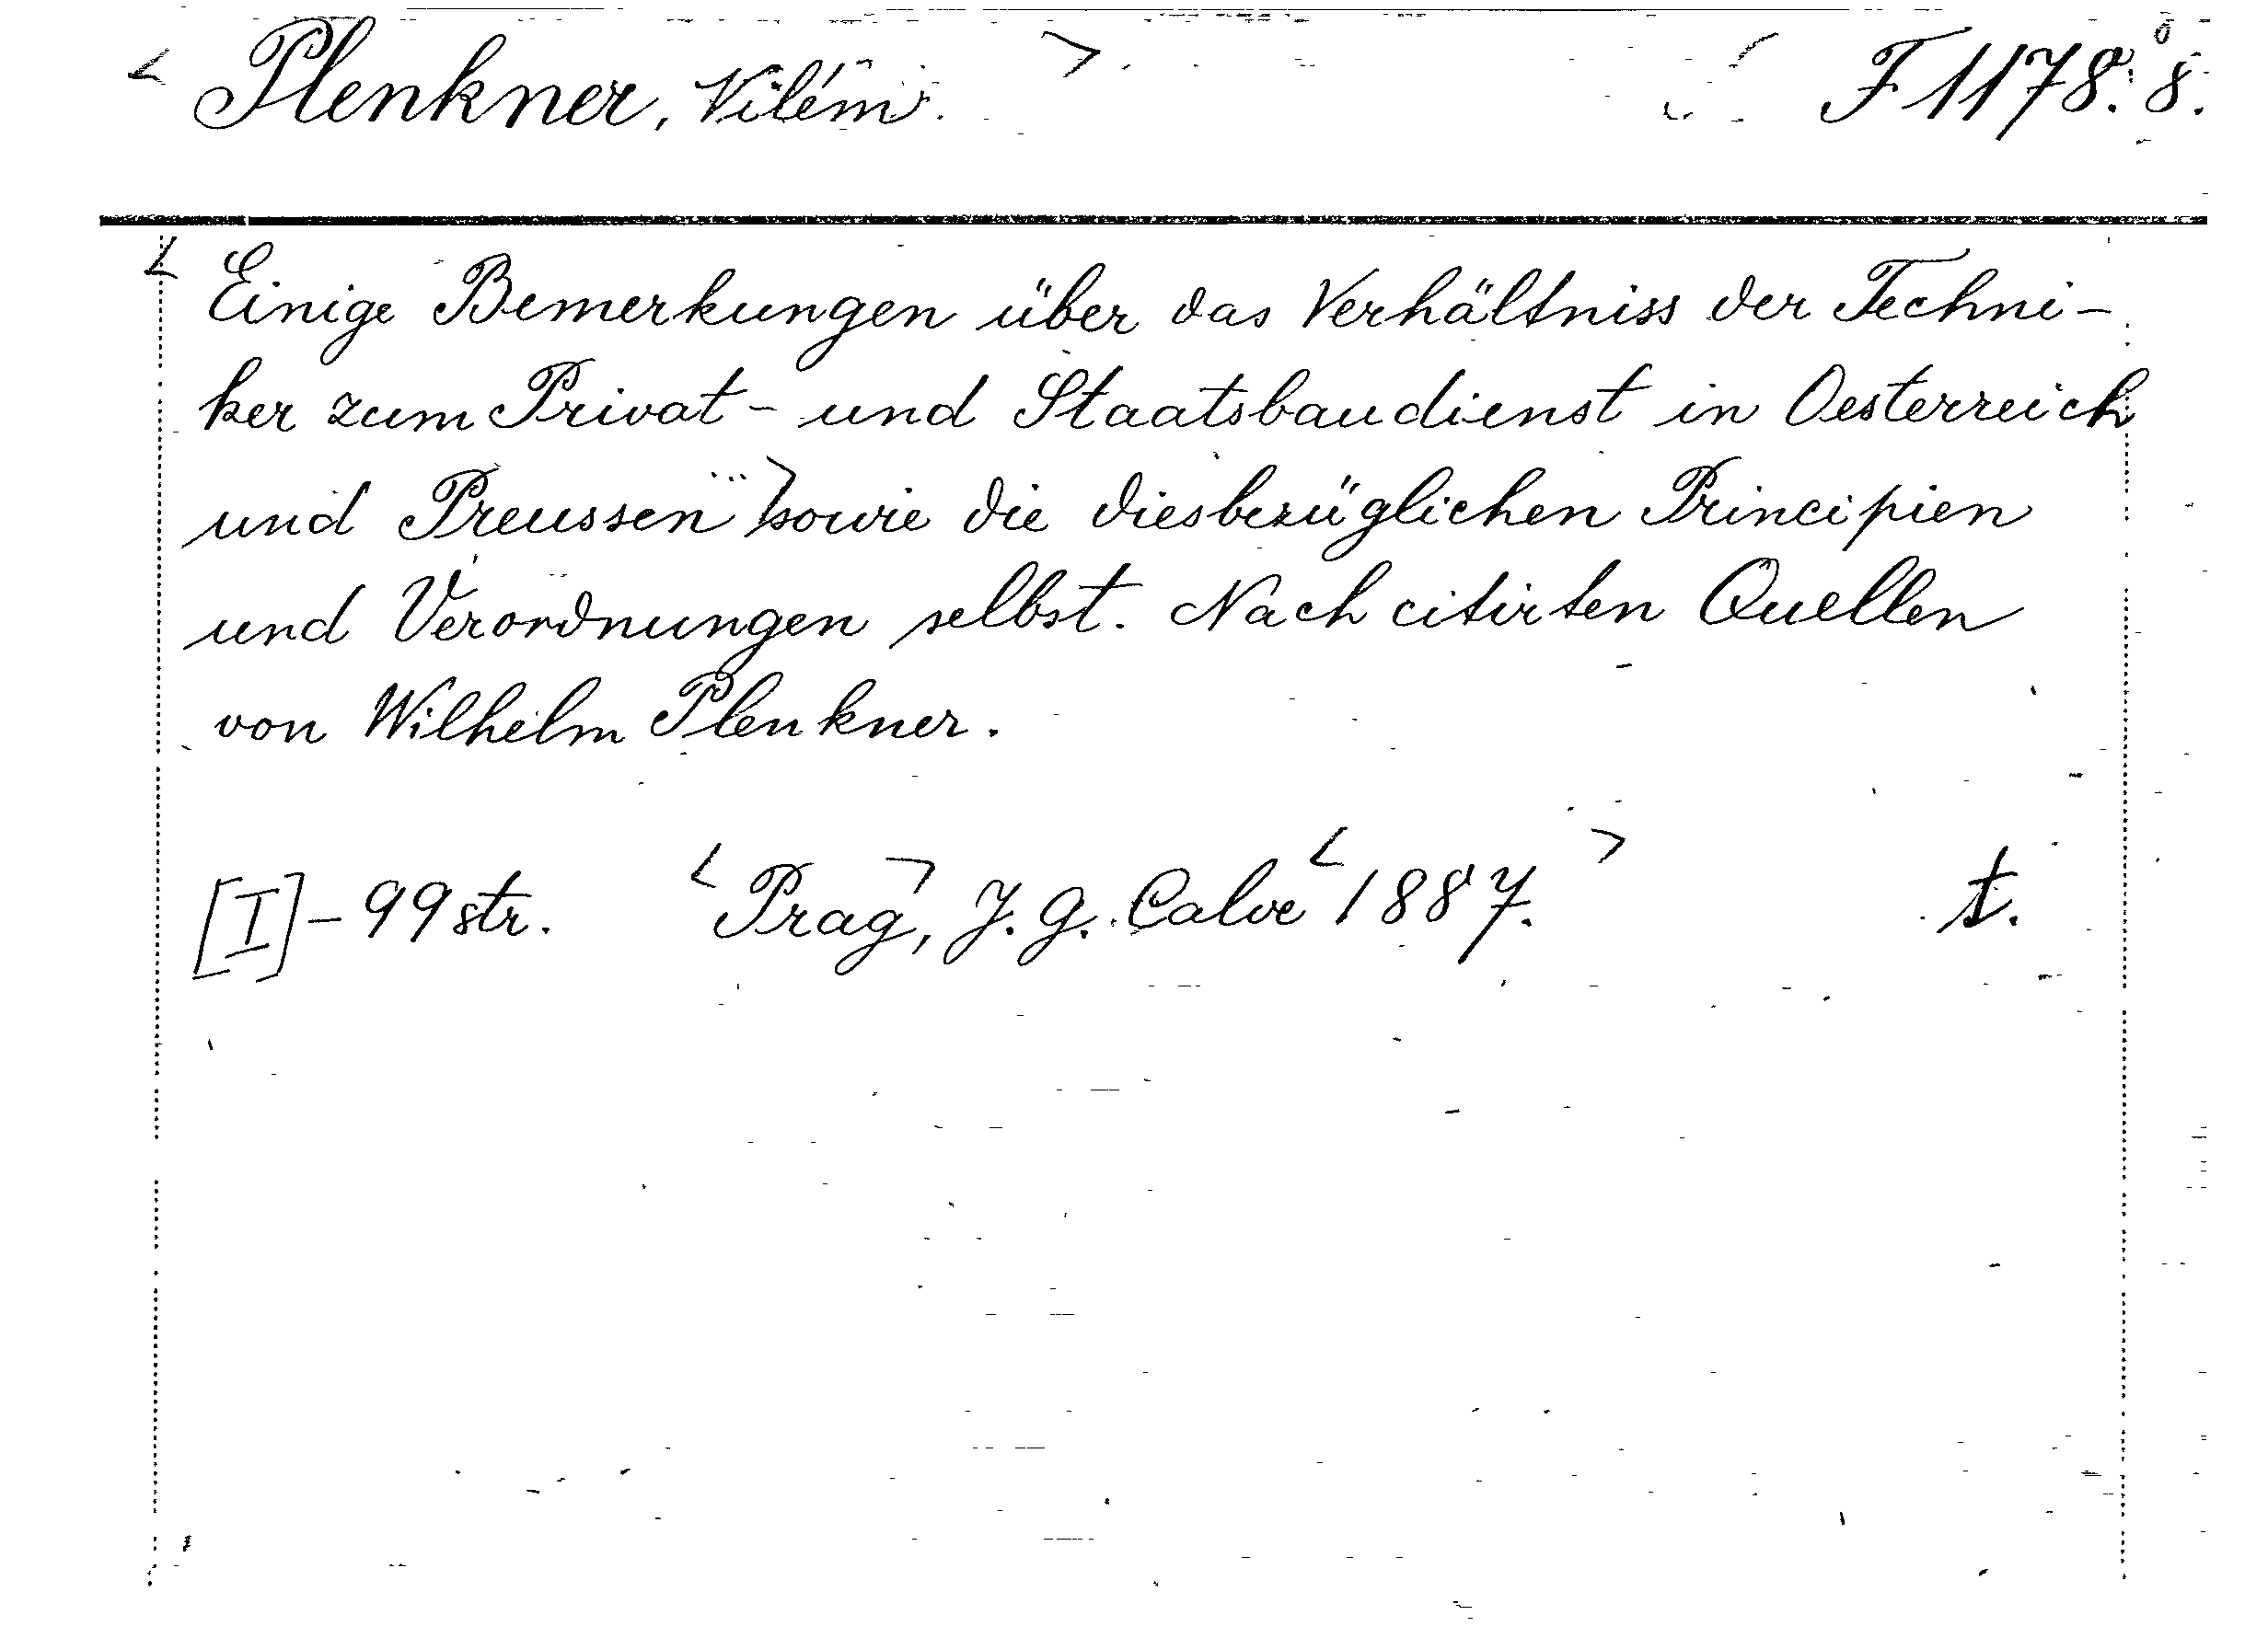 < Plenkner, Vilém. > F 1178. 8°.
< Einige Bemerkungen über das Verhältniss der Techni-
ker zum Privat- und Staatsbaudienst in Oesterreich
und Preussen ...> sowie die diesbezüglichen Principien
und Verordnungen selbst. Nach citirten Quellen
von Wilhelm Plenkner.
[I]-99 str. <Prag>, J. G. Calve <1887.> t.